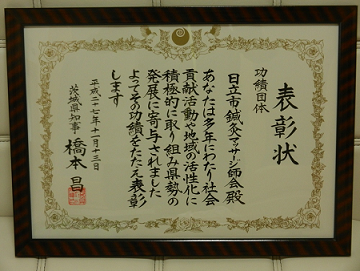 表彰状
功績団体
日立市鍼灸マッサージ師会殿
あなたは多年にわたり社会
貢献活動や地域の活性化に
積極的に取り組み県勢の
発展に寄与されました
よってその功績をたたえ表彰
します
平成二十七年十一月十三日
茨城県知事 橋本昌